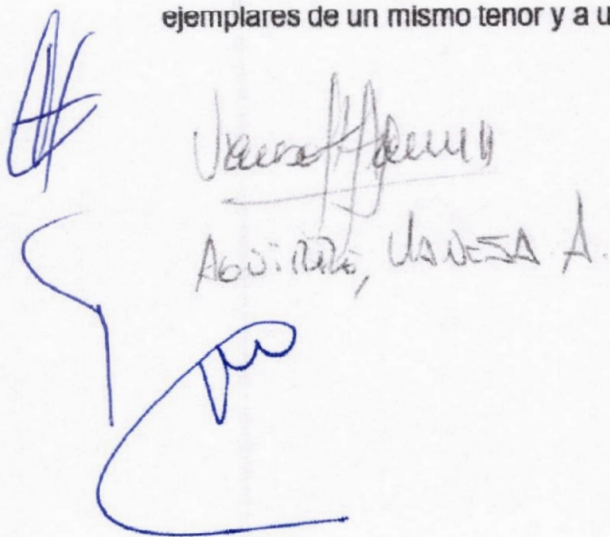 ejemplares de un mismo tenor y a u
AGUIRRE, VANESA A.